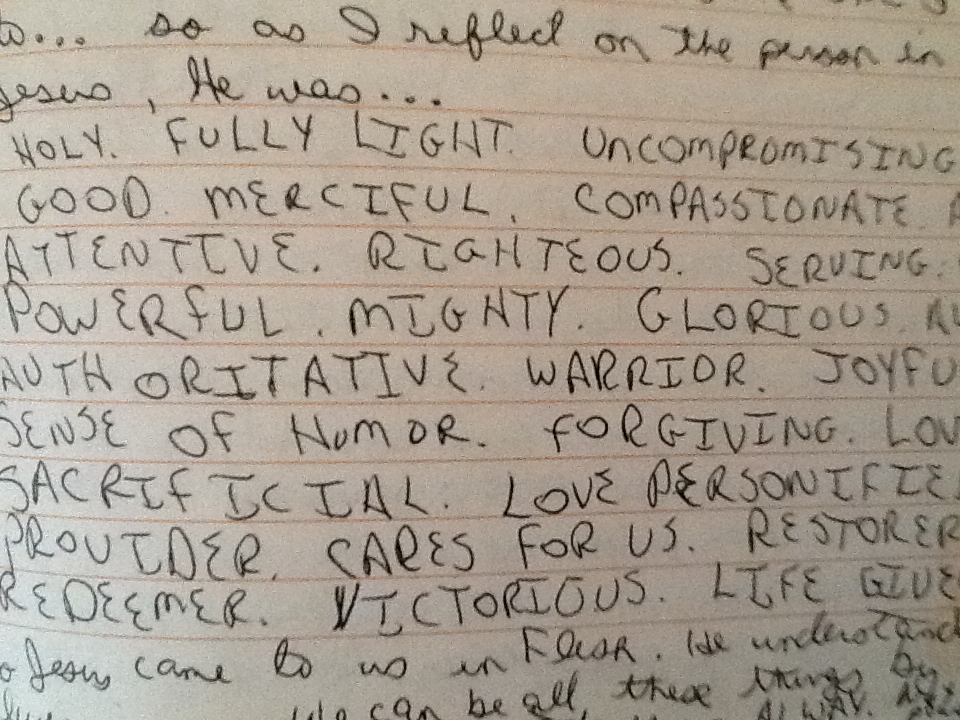 ... so as I reflect on the person in
Jesus, He was...
HOLY. FULLY LIGHT. UNCOMPROMISING
GOOD. MERCIFUL. COMPASSIONATE.
ATTENTIVE. RIGHTEOUS. SERVING.
POWERFUL. MIGHTY. GLORIOUS.
AUTHORITATIVE. WARRIOR. JOYFU
SENSE OF HUMOR. FORGIVING. LOV
SACRIFICIAL. LOVE PERSONIFIE
PROVIDER. CARES FOR US. RESTORER
REDEEMER. VICTORIOUS. LIFE GIVE
Jesus came to us in Flesh. He understand
can be all these things by